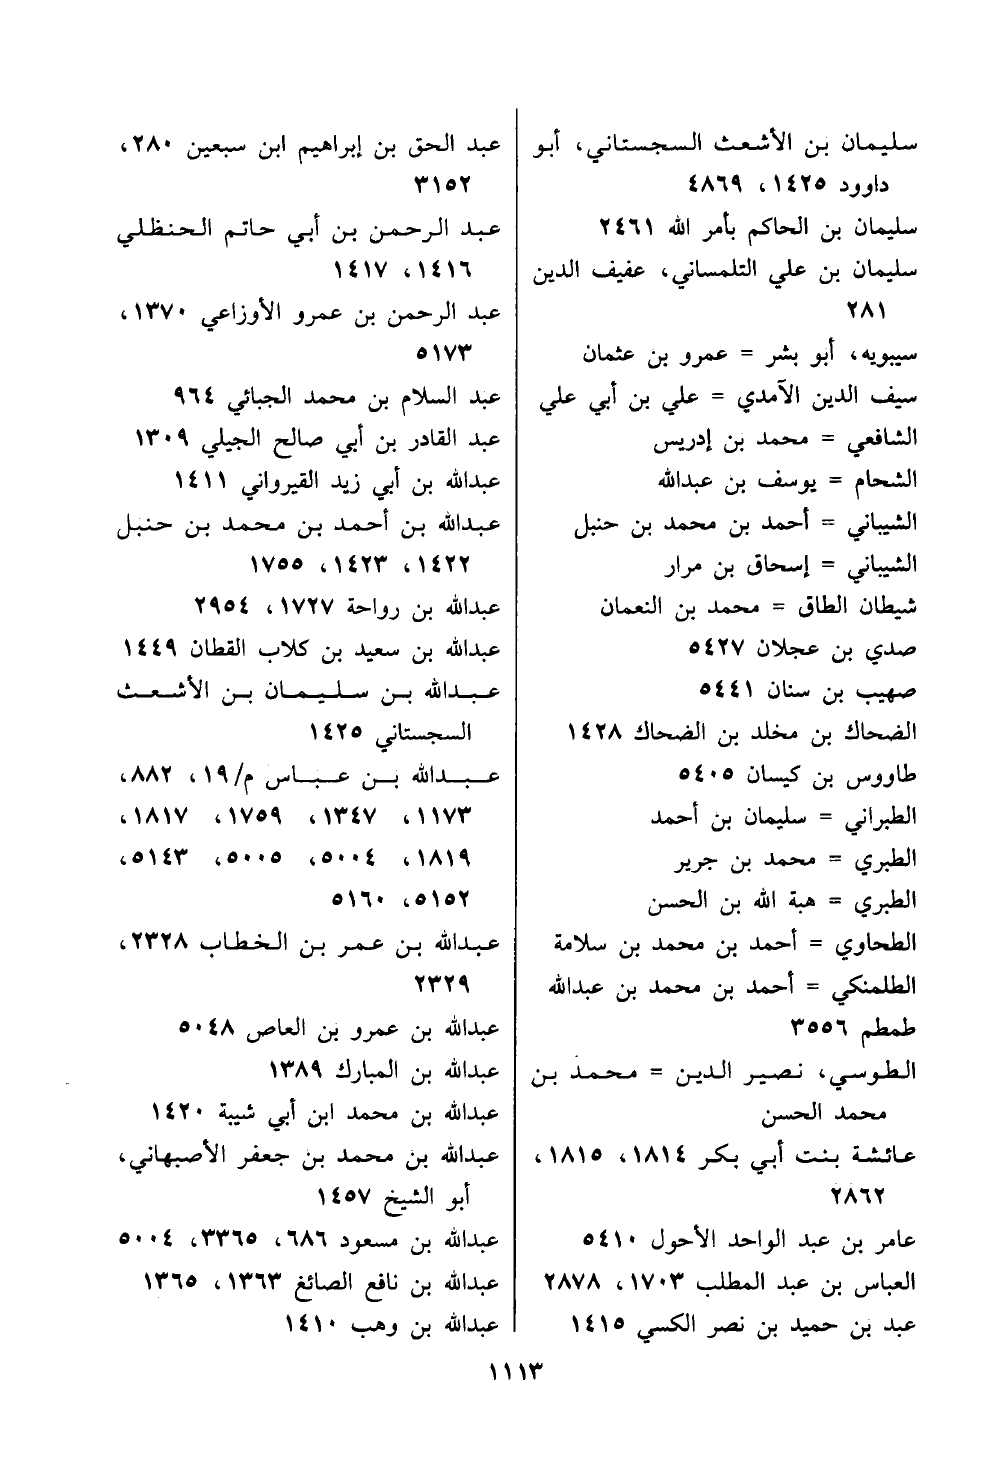 سليمان بن الأشعث السجستاني، أبو
داوود ١٤٢٥، ٤٨٦٩
سليمان بن الحاكم بأمر الله ٢٤٦١
سليمان بن علي التلمساني، عفيف الدين
٢٨١
سيبويه، أبو بشر = عمرو بن عثمان
سيف الدين الآمدي = علي بن أبي علي
الشافعي = محمد بن إدريس
الشحام = يوسف بن عبدالله
الشيباني = أحمد بن محمد بن حنبل
الشيباني = إسحاق بن مرار
شيطان الطاق = محمد بن النعمان
صدي بن عجلان ٥٤٢٧
صهيب بن سنان ٥٤٤١
الضحاك بن مخلد بن الضحاك ١٤٢٨
طاووس بن كيسان ٥٤٠٥
الطبراني = سليمان بن أحمد
الطبري = محمد بن جرير
الطبري = هبة الله بن الحسن
الطحاوي = أحمد بن محمد بن سلامة
الطلمنكي = أحمد بن محمد بن عبدالله
طمطم ٣٥٥٦
الطوسي، نصير الدين = محمد بن
محمد الحسن
عائشة بنت أبي بكر ١٨١٤، ١٨١٥،
٢٨٦٢
عامر بن عبد الواحد الأحول ٥٤١٠
العباس بن عبد المطلب ١٧٠٣، ٢٨٧٨
عبد بن حميد بن نصر الكسي ١٤١٥
عبد الحق بن إبراهيم ابن سبعين ٢٨٠،
٣١٥٢
عبد الرحمن بن أبي حاتم الحنظلي
١٤١٦، ١٤١٧
عبد الرحمن بن عمرو الأوزاعي ١٣٧٠،
٥١٧٣
عبد السلام بن محمد الجبائي ٩٦٤
عبد القادر بن أبي صالح الجيلي ١٣٠٩
عبدالله بن أبي زيد القيرواني ١٤١١
عبدالله بن أحمد بن محمد بن حنبل
١٤٢٢، ١٤٢٣، ١٧٥٥
عبدالله بن رواحة ١٧٢٧، ٢٩٥٤
عبدالله بن سعيد بن كلاب القطان ١٤٤٩
عبدالله بن سليمان بن الأشعث
السجستاني ١٤٢٥
عبدالله بن عباس م/١٩، ٨٨٢،
١١٧٣، ١٣٤٧، ١٧٥٩، ١٨١٧،
١٨١٩، ٥٠٠٤، ٥٠٠٥، ٥١٤٣،
٥١٥٢، ٥١٦٠
عبدالله بن عمر بن الخطاب ٢٣٢٨،
٢٣٢٩
عبدالله بن عمرو بن العاص ٥٠٤٨
عبدالله بن المبارك ١٣٨٩
عبدالله بن محمد ابن أبي شيبة ١٤٢٠
عبدالله بن محمد بن جعفر الأصبهاني،
أبو الشيخ ١٤٥٧
عبدالله بن مسعود ٦٨٦، ٣٣٦٥، ٥٠٠٤
عبدالله بن نافع الصائغ ١٣٦٣، ١٣٦٥
عبدالله بن وهب ١٤١٠
١١١٣